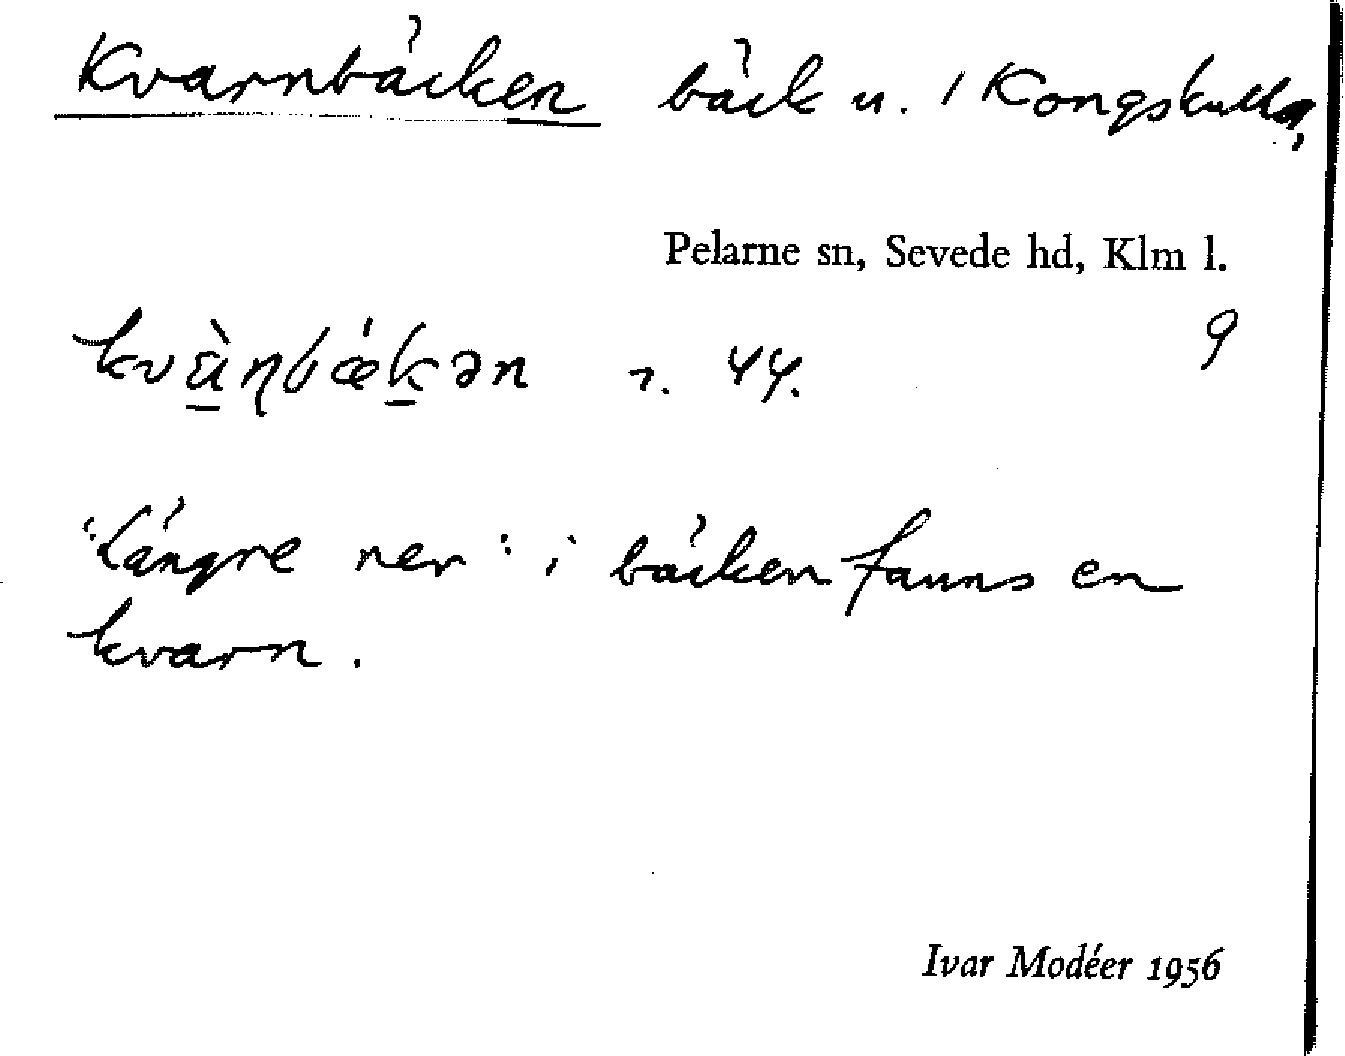 Kvarnbäcken bäck u. / Kongskulla,
Pelarne sn, Sevede hd, Klm l.
9
kvὰ̱ɳbǽḵən r. 44.
"längre ner": i bäcken fanns en
kvarn.
Ivar Modéer 1956